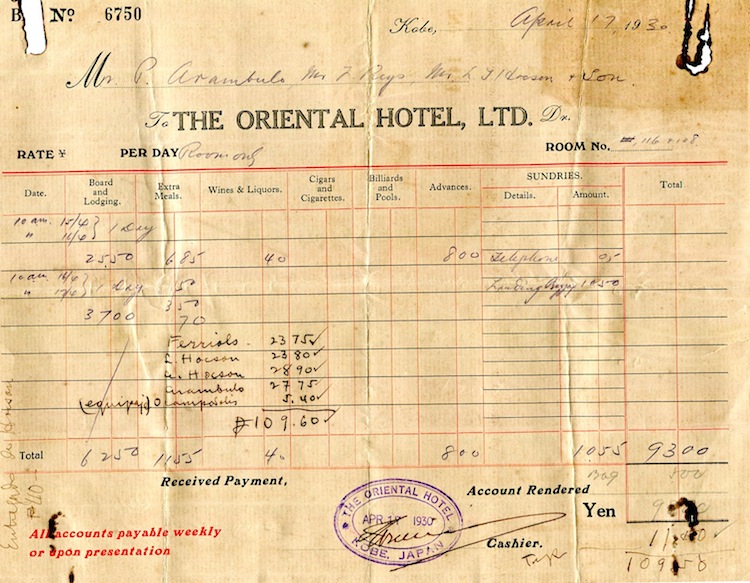 B Nº 6750
Kobe, April 17, 1930
Mr. P. Arambulo, Mr F. Reys, Mr. L. & Son.
To THE ORIENTAL HOTEL, LTD. Dr.
RATE ¥ PER DAY Room only ROOM No. 116 108
Date. Board and Lodging. Extra Meals. Wines & Liquors. Cigars and Cigarettes. Billiards and Pools. Advances. SUNDRIES. Details. Amount. Total
10 am. 15/4 } 1 Day
" 16/4
25.50 6 85 40 8 00 Telephone 05
10 am. 16/4 } 1 Day 50 Landing 10 50
" 17/4
37 00 3 50
70
Ferriols. 23 75 ✓
L. Hocson 23 80 ✓
a. Hocson 28 90 ✓
Arambulo 27 75
(equipaje) 5.40 ✓
₱109.60 ✓
Total 62 50 11 55 40 8 00 10 55 93 00
Bag 5 00
Received Payment, Account Rendered
Yen
Cashier.
109 50
All accounts payable weekly
or upon presentation
THE ORIENTAL HOTEL
APR 17 1930
KOBE, JAPAN